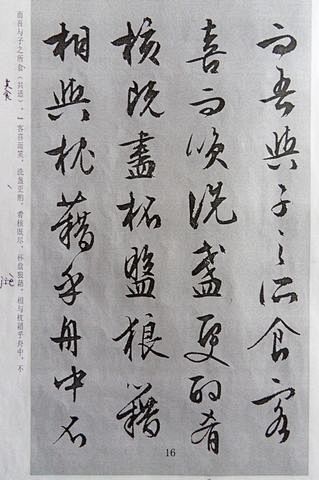 而吾與子之所食客
喜而笑洗盞更酌肴
核既盡杯盤狼籍
相與枕藉乎舟中不
16
而吾与子之所食（共适）。”客喜而笑，洗盏更酌，肴核既尽，杯盘狼藉。相与枕藉乎舟中，不